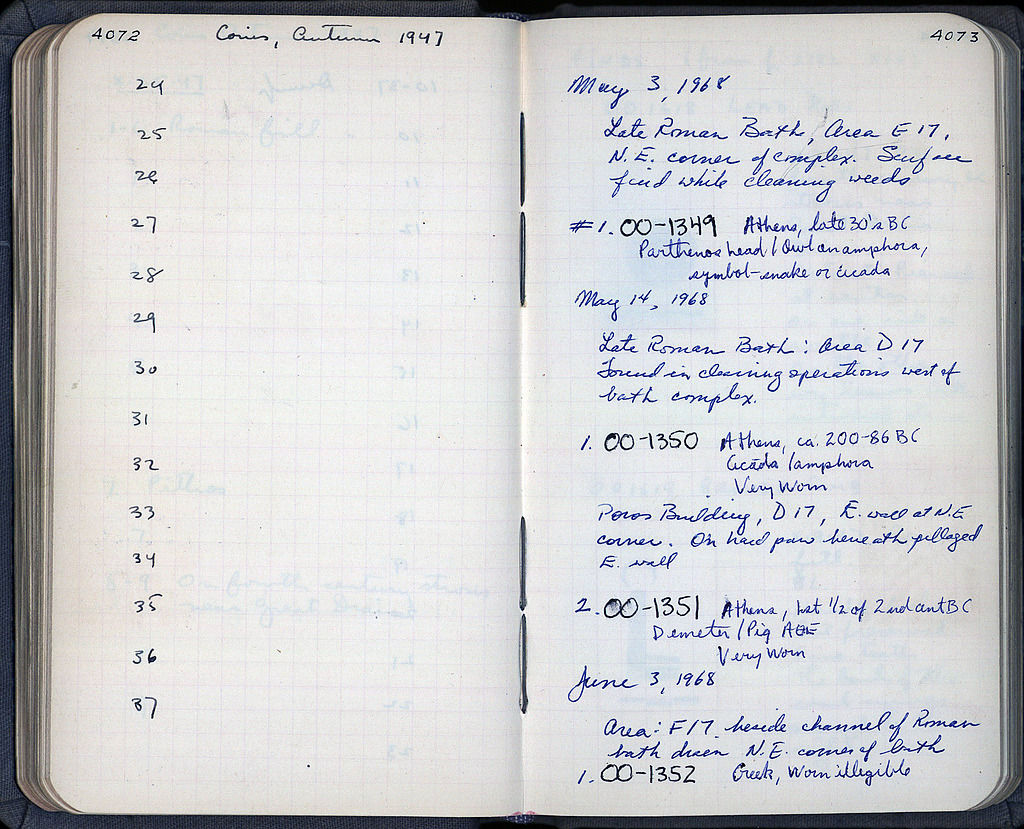 4072 Coins, Autumn 1947
24
25
26
27
28
29
30
31
32
33
34
35
36
37
4073
May 3, 1968
Late Roman Bath, Area E 17,
N.E. corner of complex. Surface
find while cleaning weeds
#1. OO-1349 Athens, late 30's BC
Parthenos head / Owl on amphora,
symbol-snake or cicada
May 14, 1968
Late Roman Bath: Area D 17
Found in cleaning operations west of
bath complex.
1. OO-1350 Athens, ca. 200-86 BC
Cicada / amphora
Very Worn
Poros Building, D 17, E. wall at N.E
corner. On hard paw beneath pillaged
E. wall
2. OO-1351 Athens, 1st 1/2 of 2nd cent BC
Demeter / Pig ΑΘΕ
Very Worn
June 3, 1968
Area: F17. beside channel of Roman
bath drain N.E. corner of bath
1. OO-1352 Greek, Worn illegible